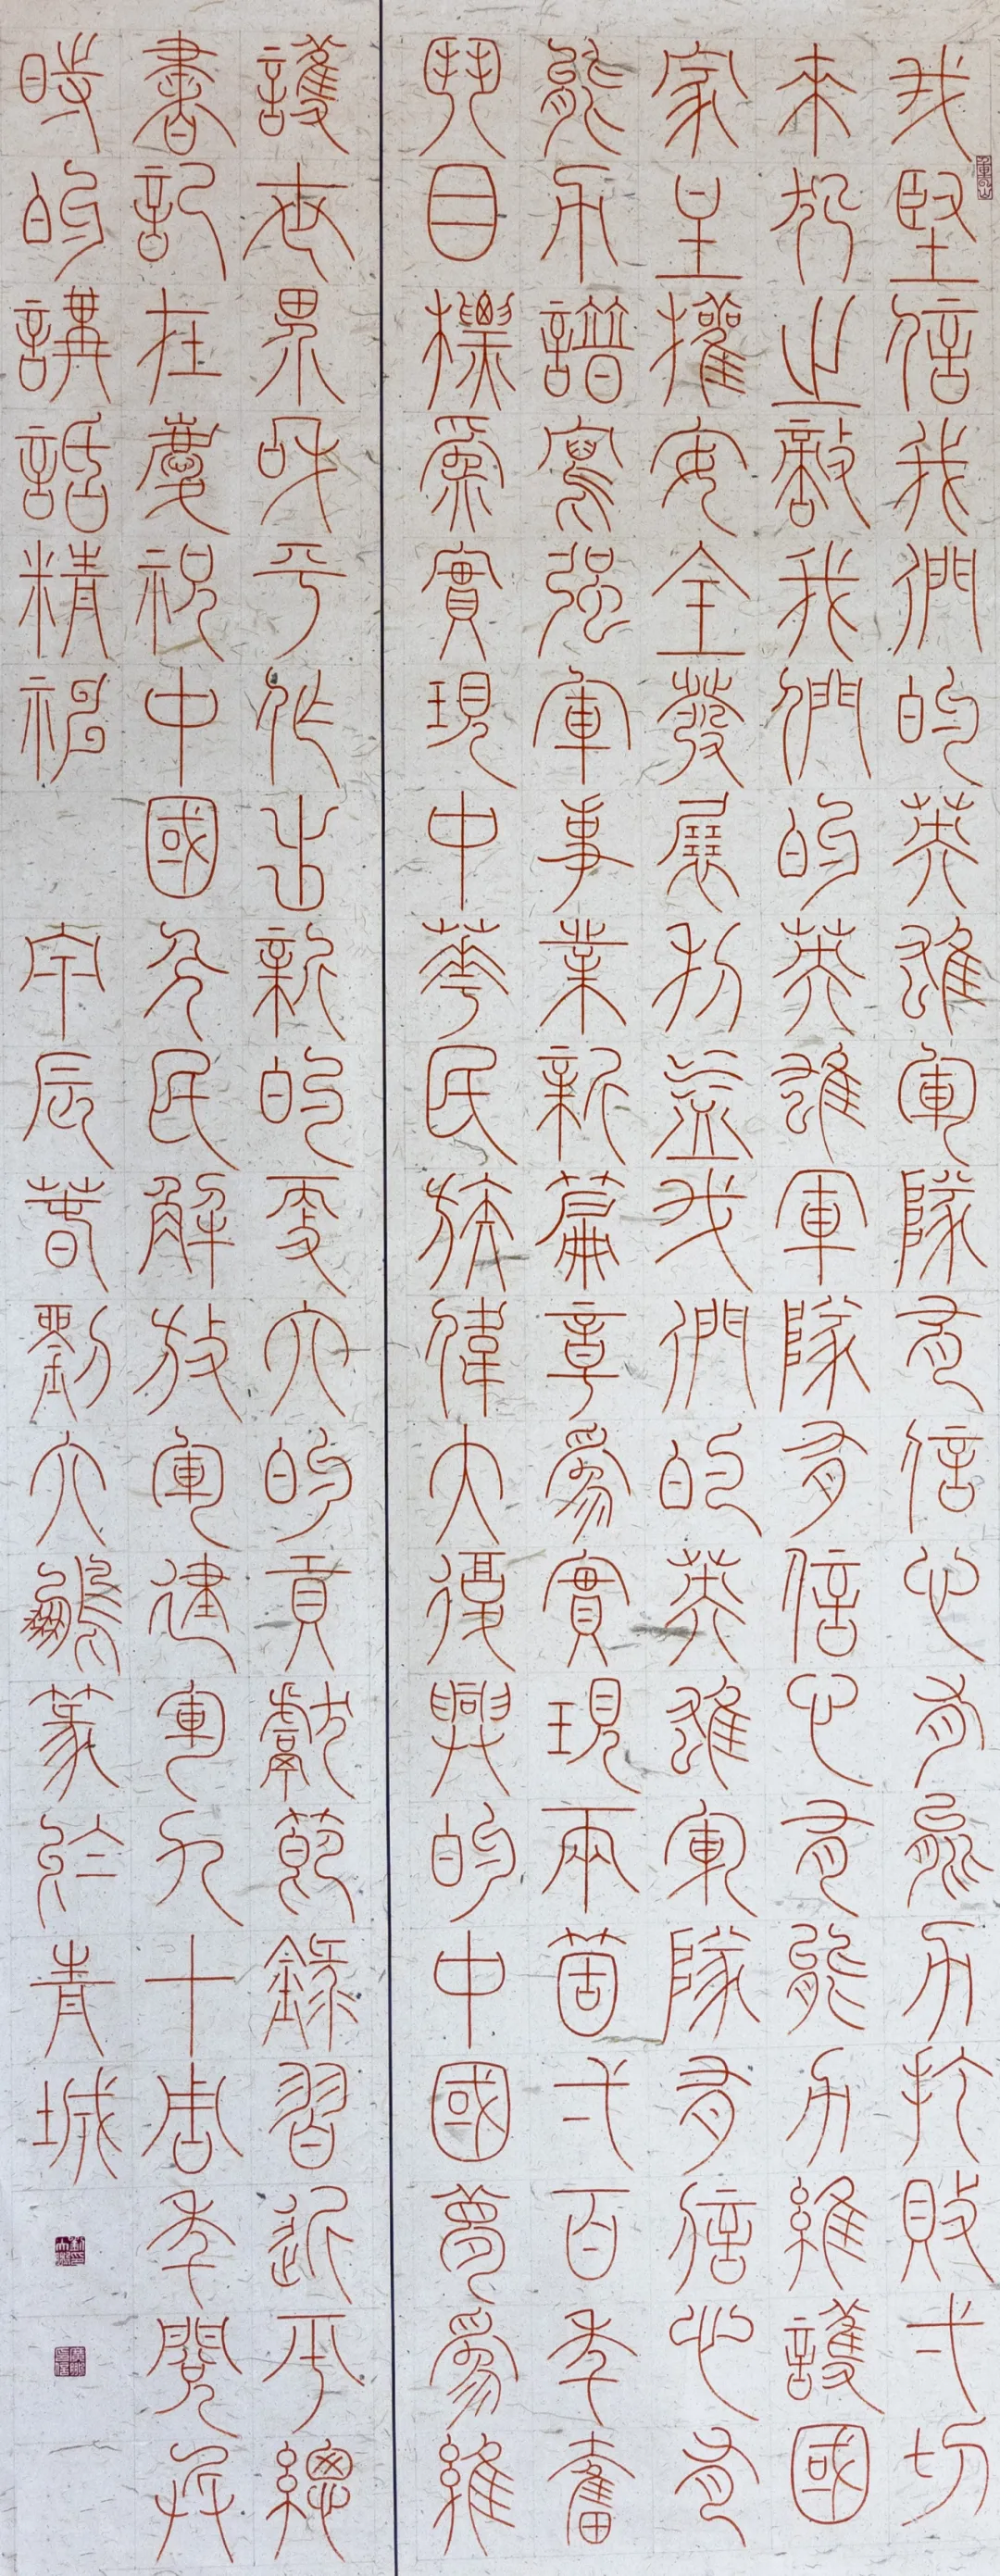 我堅信我們的英雄軍隊有信心有能力打敗弌切
來犯之敵我們的英雄軍隊有信心有能力維護國
家主權安全發展利益我們的英雄軍隊有信心有
能力譜寫强軍事業新篇章爲實現兩箇弌百年奮
鬥目標爲實現中華民族偉大復興的中國夢爲維
護世界和平作出新的更大的貢獻節錄習近平總
書記在慶祝中國人民解放軍建軍九十周年閱兵
時的講話精神 甲辰春劉大鵬篆於青城